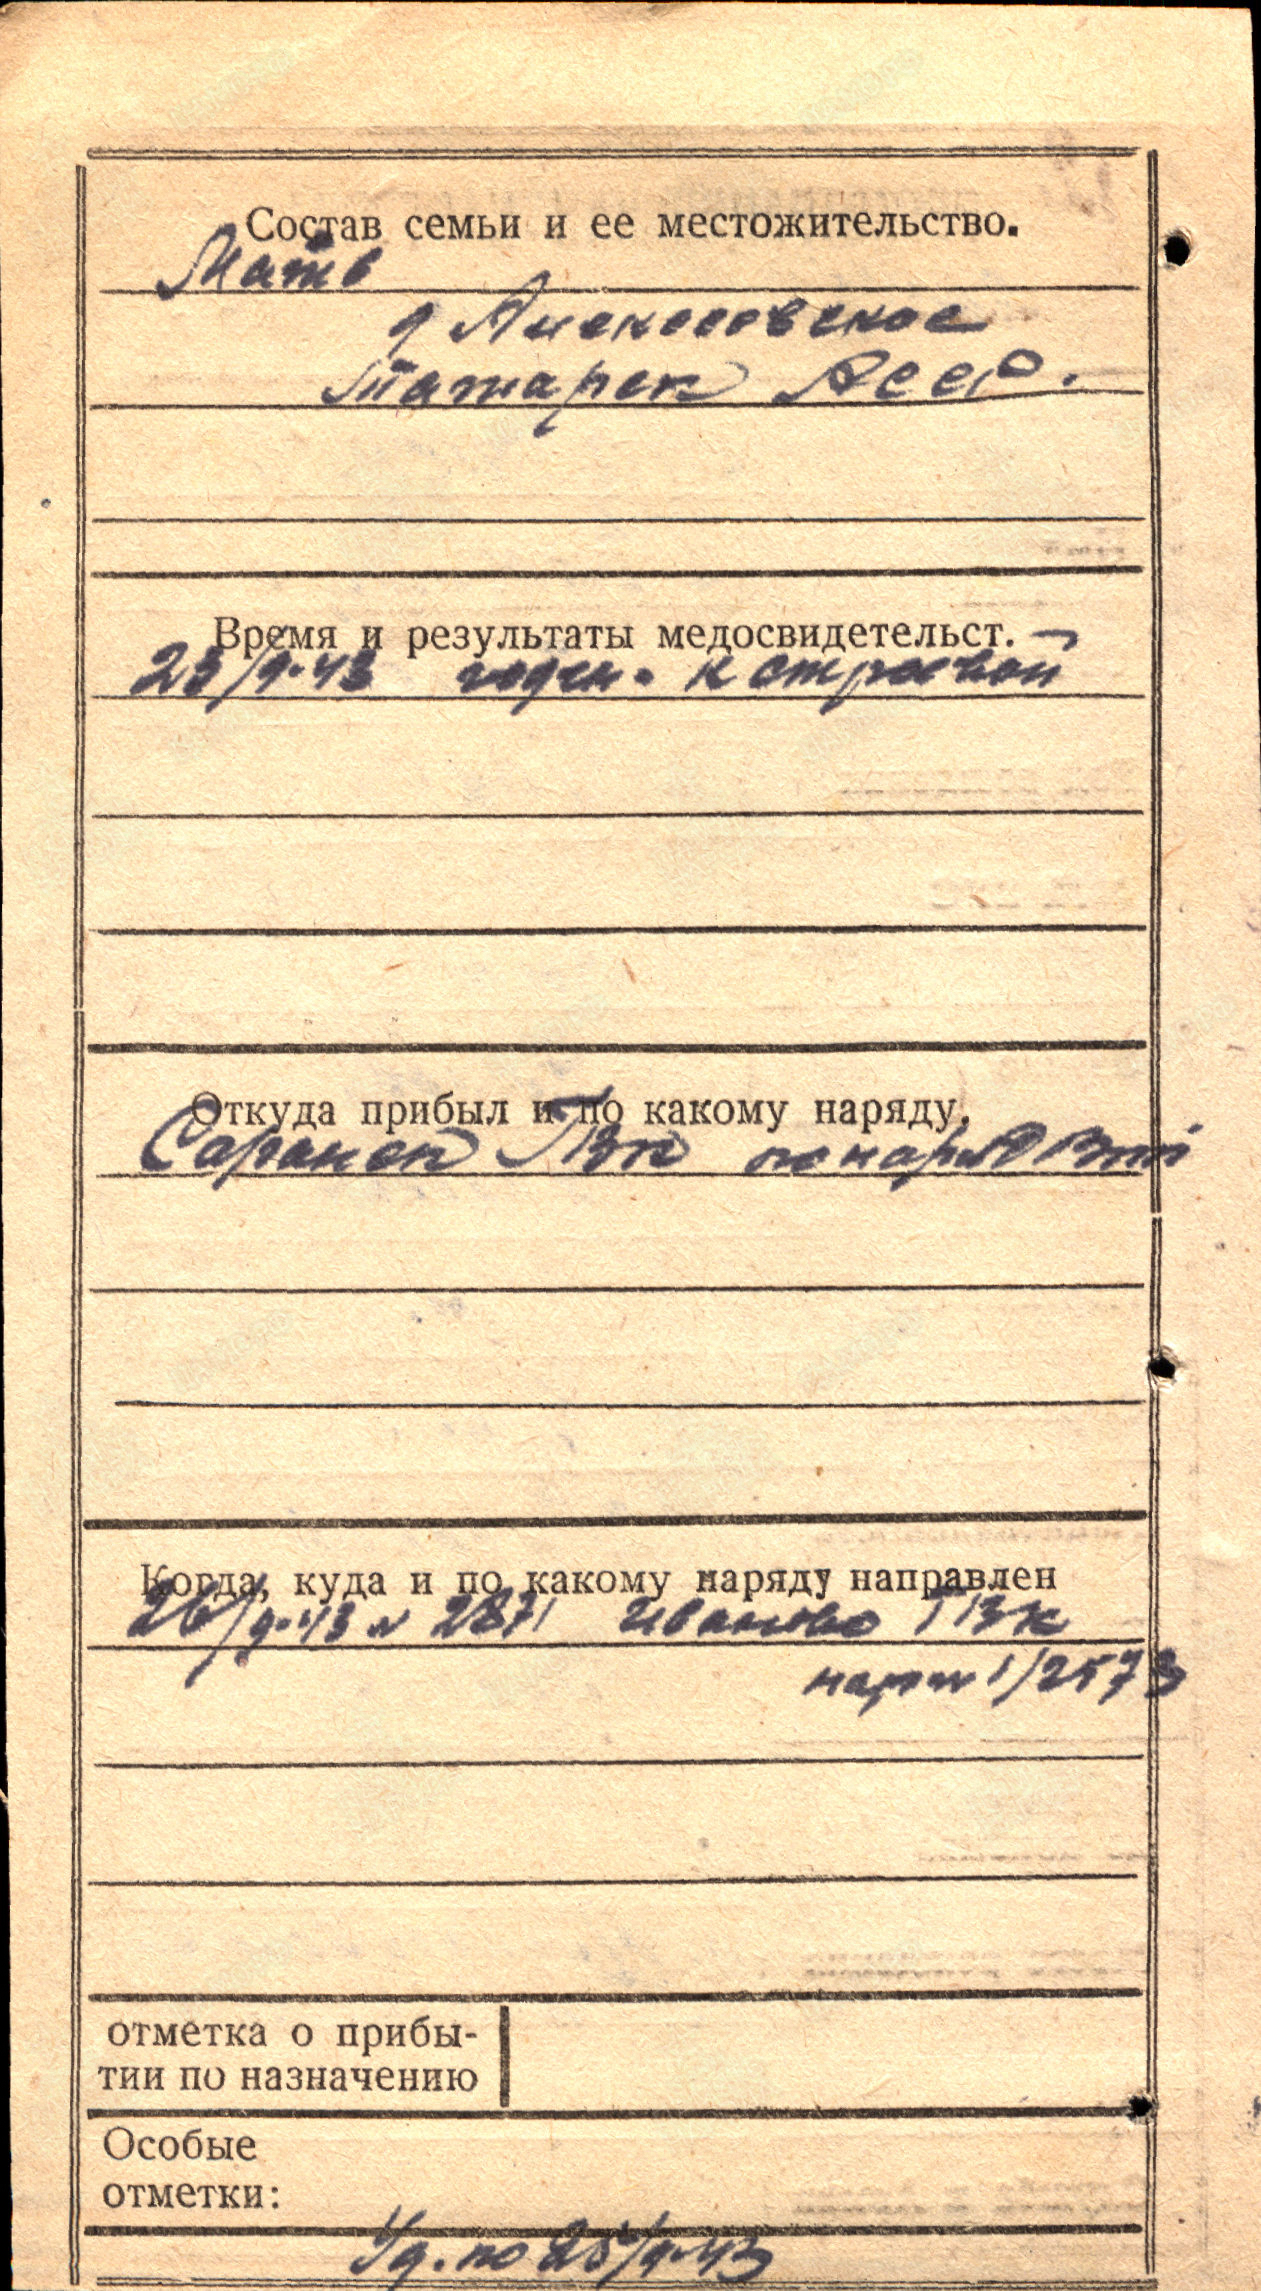 Состав семьи и ее местожительство.
Мать
д Алексеевское
Татарск АССР.
Время и результаты медосвидетельст.
23/9.43 годен. к строевой
Откуда прибыл и по какому наряду.
Саранск ГВК
Когда, куда и по какому наряду направлен
26/9.43 № 2871 Иваново ГВК
1/2573
отметка о прибы-
тии по назначению
Особые
отметки:
Уд. по 25/9.43